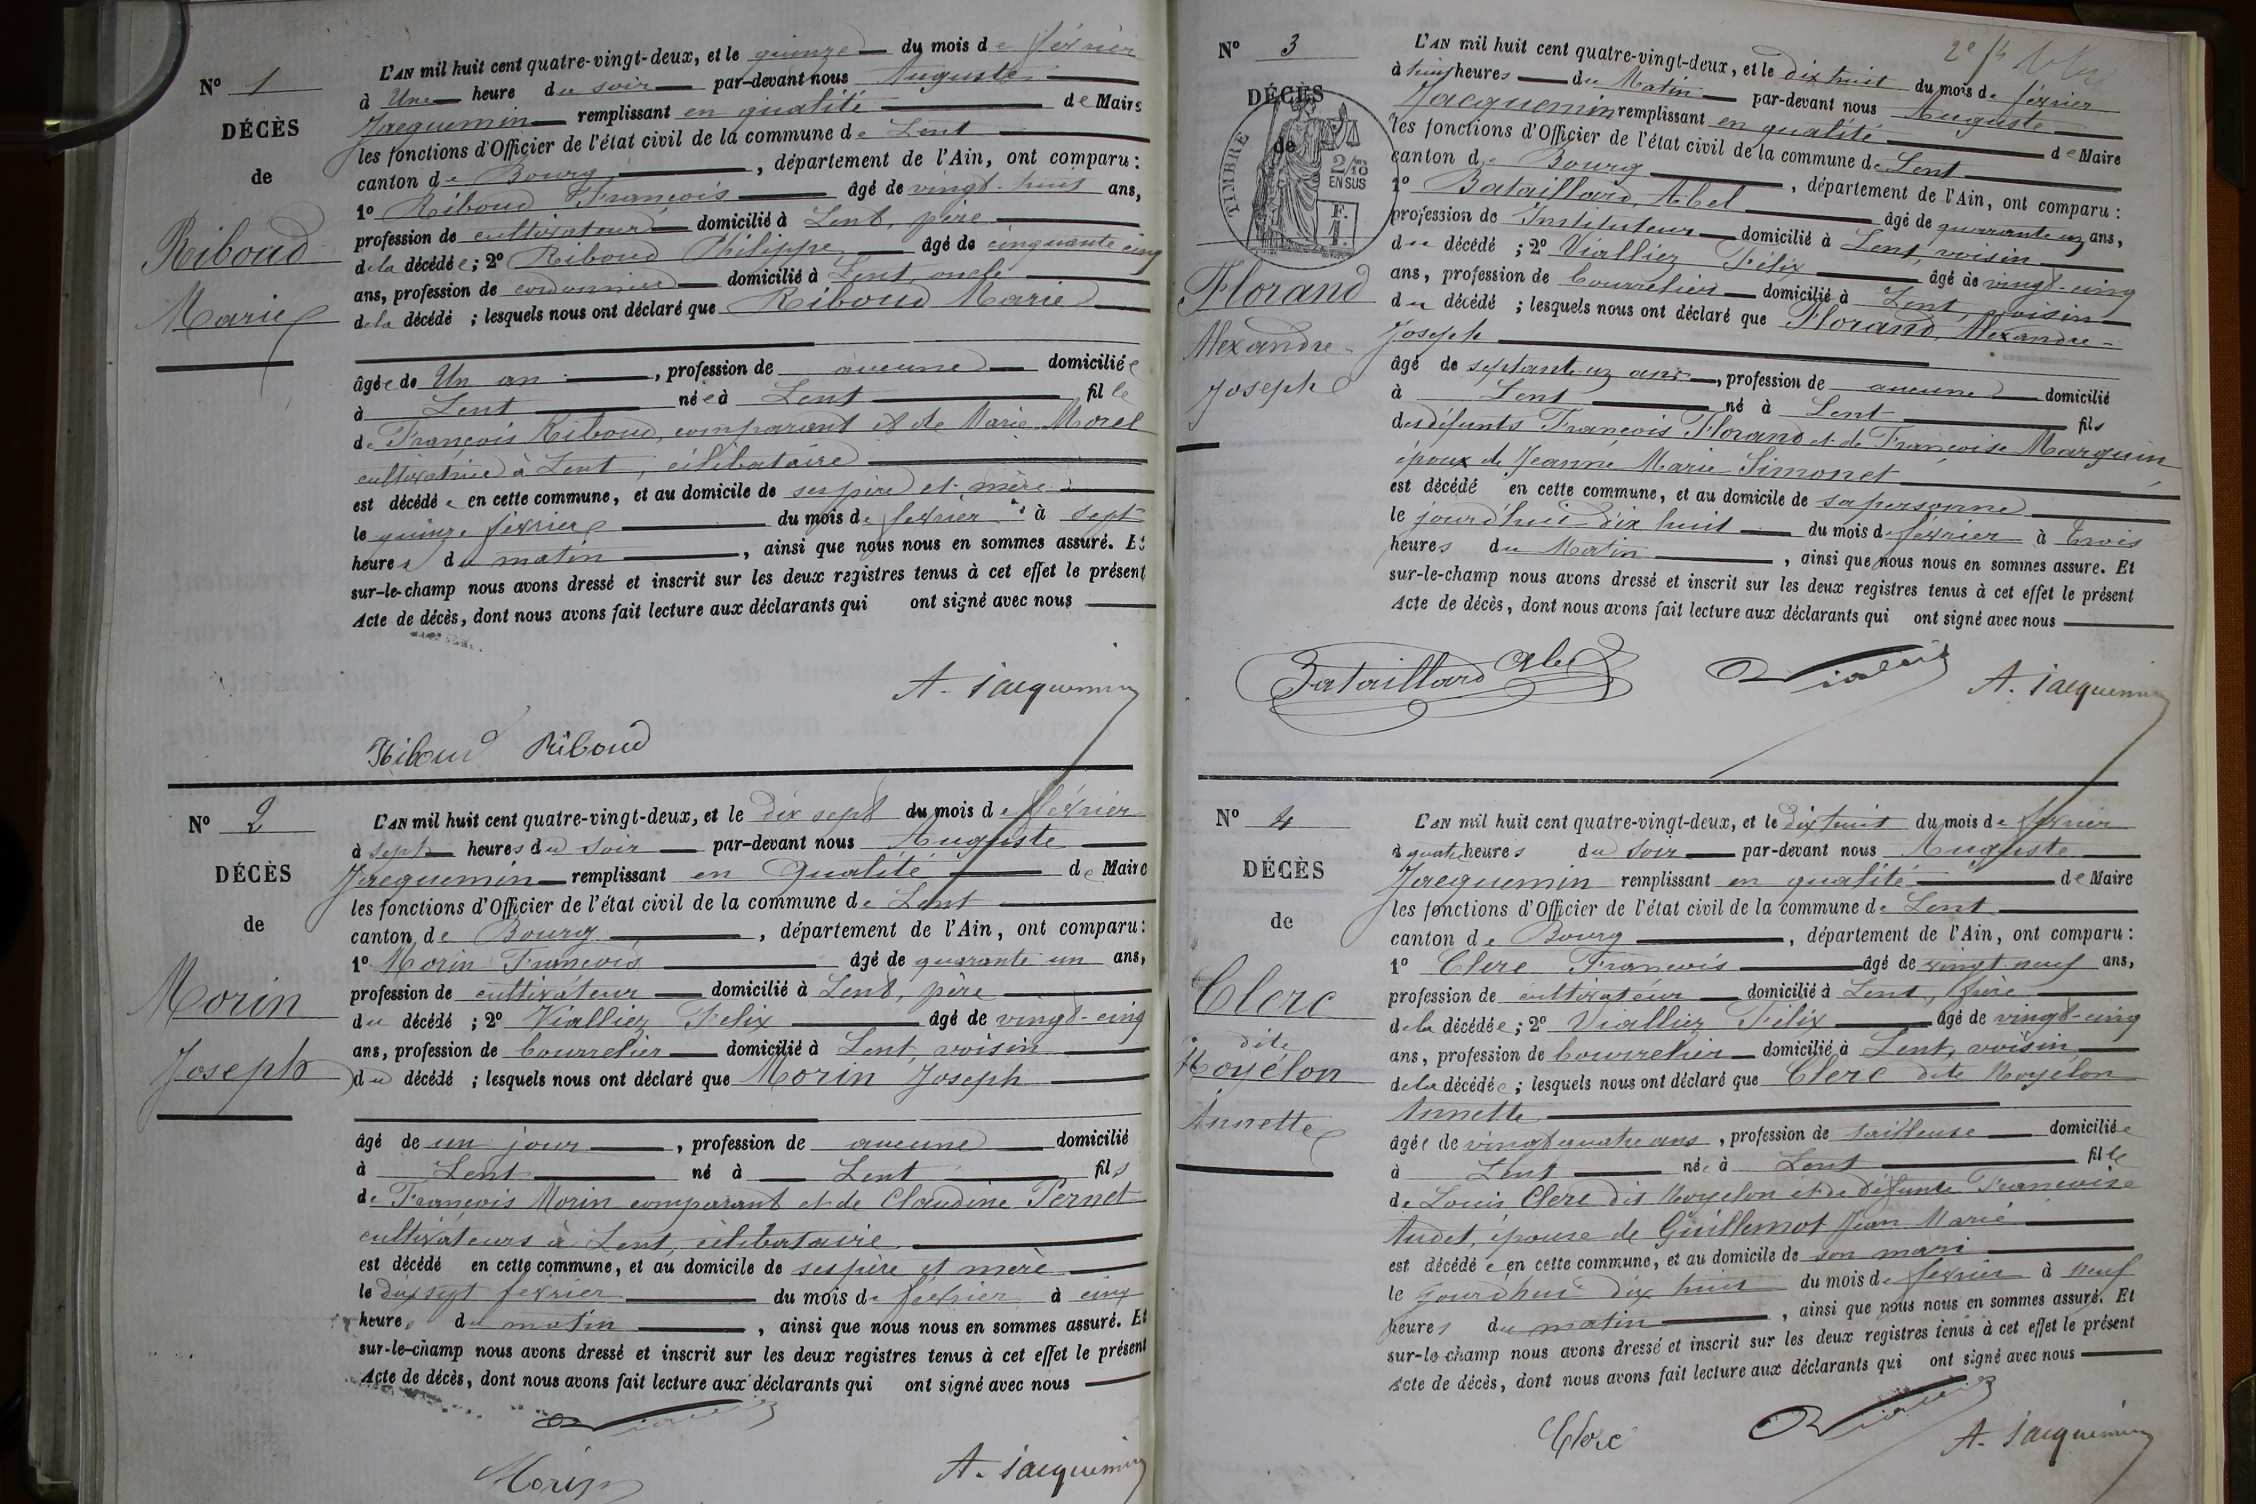 Nº 1
DÉCÈS
de
Riboud
Marie
L'AN mil huit cent quatre-vingt-deux, et le quinze du mois de février
à Une heure du soir par-devant nous Auguste
Jacquemin remplissant en qualité de Maire
les fonctions d'Officier de l'état civil de la commune de Lent
canton de Bourg, département de l'Ain, ont comparu :
1º Riboud François âgé de vingt-huit ans,
profession de cultivateur domicilié à Lent, père
de la décédée ; 2º Riboud Philippe âgé de cinquante cinq
ans, profession de cordonnier domicilié à Lent, oncle
de la décédé ; lesquels nous ont déclaré que Riboud Marie
âgée de Un an, profession de aucune domiciliée
à Lent née à Lent fille
de François Riboud, comparant et de Marie Morel
cultivatrice à Lent, célibataire
est décédée en cette commune, et au domicile de ses père et mère
le quinze février du mois de février à sept
heures du matin, ainsi que nous nous en sommes assuré. Et
sur-le-champ nous avons dressé et inscrit sur les deux registres tenus à cet effet le présent
Acte de décès, dont nous avons fait lecture aux déclarants qui ont signé avec nous
A. Jacquemin
Riboud Riboud
Nº 2
DÉCÈS
de
Morin
Joseph
L'AN mil huit cent quatre-vingt-deux, et le dix sept du mois de février
à sept heures du soir par-devant nous Auguste
Jacquemin remplissant en qualité de Maire
les fonctions d'Officier de l'état civil de la commune de Lent
canton de Bourg, département de l'Ain, ont comparu :
1º Morin François âgé de quarante un ans,
profession de cultivateur domicilié à Lent, père
du décédé ; 2º Viallier Félix âgé de vingt-cinq
ans, profession de bourrelier domicilié à Lent, voisin
du décédé ; lesquels nous ont déclaré que Morin Joseph
âgé de un jour, profession de aucune domicilié
à Lent né à Lent fils
de François Morin comparant et de Claudine Pernet
cultivateurs à Lent, célibataire
est décédé en cette commune, et au domicile de ses père et mère
le dix sept février du mois de février à cinq
heures du matin, ainsi que nous nous en sommes assuré. Et
sur-le-champ nous avons dressé et inscrit sur les deux registres tenus à cet effet le présent
Acte de décès, dont nous avons fait lecture aux déclarants qui ont signé avec nous
Morin A. Jacquemin
Nº 3
DÉCÈS
de
TIMBRE
2/10 EN SUS
F. 1.
Florand
Alexandre-
Joseph
L'AN mil huit cent quatre-vingt-deux, et le dix huit du mois de février
à huit heures du Matin par-devant nous Auguste
Jacquemin remplissant en qualité de Maire
les fonctions d'Officier de l'état civil de la commune de Lent
canton de Bourg, département de l'Ain, ont comparu :
1º Bataillard, Abel âgé de quarante un ans,
profession de Instituteur domicilié à Lent, voisin
du décédé ; 2º Viallier Félix âgé de vingt-cinq
ans, profession de bourrelier domicilié à Lent, voisin
du décédé ; lesquels nous ont déclaré que Florand, Alexandre-
Joseph
âgé de septante un ans, profession de aucune domicilié
à Lent né à Lent fils
des défunts François Florand et de Françoise Marguin
époux de Jeanne Marie Simonet
est décédé en cette commune, et au domicile de sa personne
le jourd'hui dix huit du mois de février à trois
heures du Matin, ainsi que nous nous en sommes assuré. Et
sur-le-champ nous avons dressé et inscrit sur les deux registres tenus à cet effet le présent
Acte de décès, dont nous avons fait lecture aux déclarants qui ont signé avec nous
Bataillard Abel A. Jacquemin
Nº 4
DÉCÈS
de
Clerc
dite
Noyélon
Annette
L'AN mil huit cent quatre-vingt-deux, et le dix huit du mois de février
à quatre heures du soir par-devant nous Auguste
Jacquemin remplissant en qualité de Maire
les fonctions d'Officier de l'état civil de la commune de Lent
canton de Bourg, département de l'Ain, ont comparu :
1º Clerc François âgé de vingt-neuf ans,
profession de cultivateur domicilié à Lent, frère
de la décédée ; 2º Viallier Félix âgé de vingt-cinq
ans, profession de bourrelier domicilié à Lent, voisin
de la décédée ; lesquels nous ont déclaré que Clerc dite Noyélon
Annette
âgée de vingt quatre ans, profession de tailleuse domiciliée
à Lent née à Lent fille
de Louis Clerc dit Noyelon et de défunte Françoise
Audet, épouse de Guillemot Jean Marie
est décédée en cette commune, et au domicile de son mari
le jourd'hui dix huit du mois de février à neuf
heures du matin, ainsi que nous nous en sommes assuré. Et
sur-le-champ nous avons dressé et inscrit sur les deux registres tenus à cet effet le présent
Acte de décès, dont nous avons fait lecture aux déclarants qui ont signé avec nous
Clerc A. Jacquemin